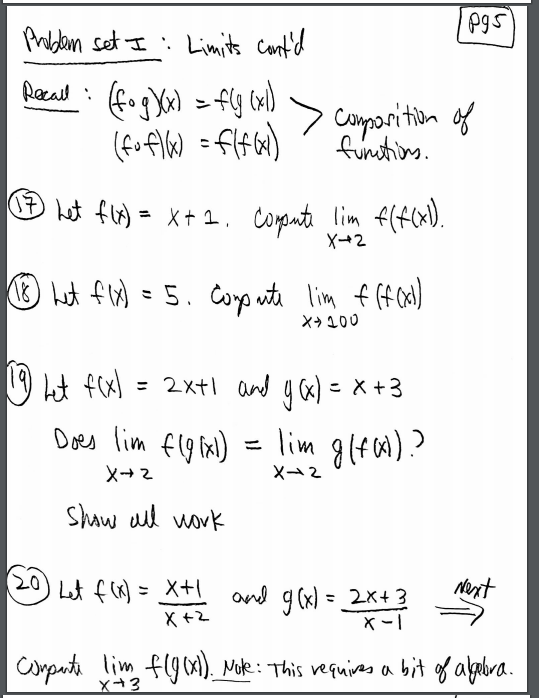 pg5
Problem set I : Limits cont'd
Recall : (f∘g)(x) = f(g(x))
(f∘f)(x) = f(f(x))
> composition of
functions.
(17) Let f(x) = x+1. Compute lim f(f(x)).
x→2
(18) Let f(x) = 5. Compute lim f(f(x))
x→100
(19) Let f(x) = 2x+1 and g(x) = x+3
Does lim f(g(x)) = lim g(f(x))?
x→2 x→2
Show all work
(20) Let f(x) = x+1/x+2 and g(x) = 2x+3/x-1 Next ⇒
Compute lim f(g(x)). Note: This requires a bit of algebra.
x→3